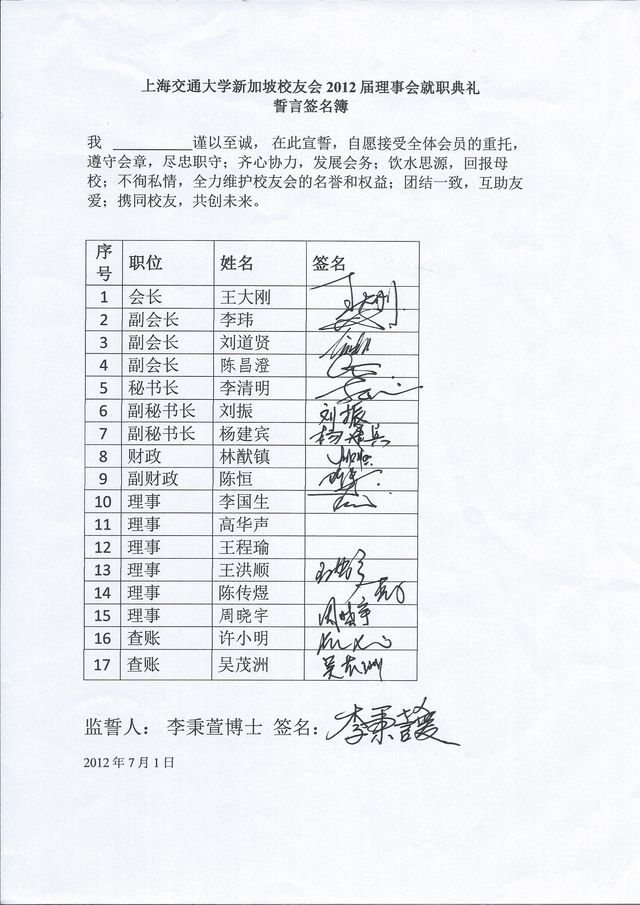 上海交通大学新加坡校友会 2012 届理事会就职典礼
誓言签名簿
我 __________谨以至诚，在此宣誓，自愿接受全体会员的重托，
遵守会章，尽忠职守；齐心协力，发展会务；饮水思源，回报母
校；不徇私情，全力维护校友会的名誉和权益；团结一致，互助友
爱；携同校友，共创未来。
序号 职位 姓名 签名
1 会长 王大刚
2 副会长 李玮
3 副会长 刘道贤
4 副会长 陈昌澄
5 秘书长 李清明
6 副秘书长 刘振 刘振
7 副秘书长 杨建宾 杨建宾
8 财政 林猷镇
9 副财政 陈恒
10 理事 李国生
11 理事 高华声
12 理事 王程瑜
13 理事 王洪顺
14 理事 陈传煜
15 理事 周晓宇 周晓宇
16 查账 许小明
17 查账 吴茂洲 吴茂洲
监誓人： 李秉萱博士 签名：李秉萱
2012 年 7 月 1 日